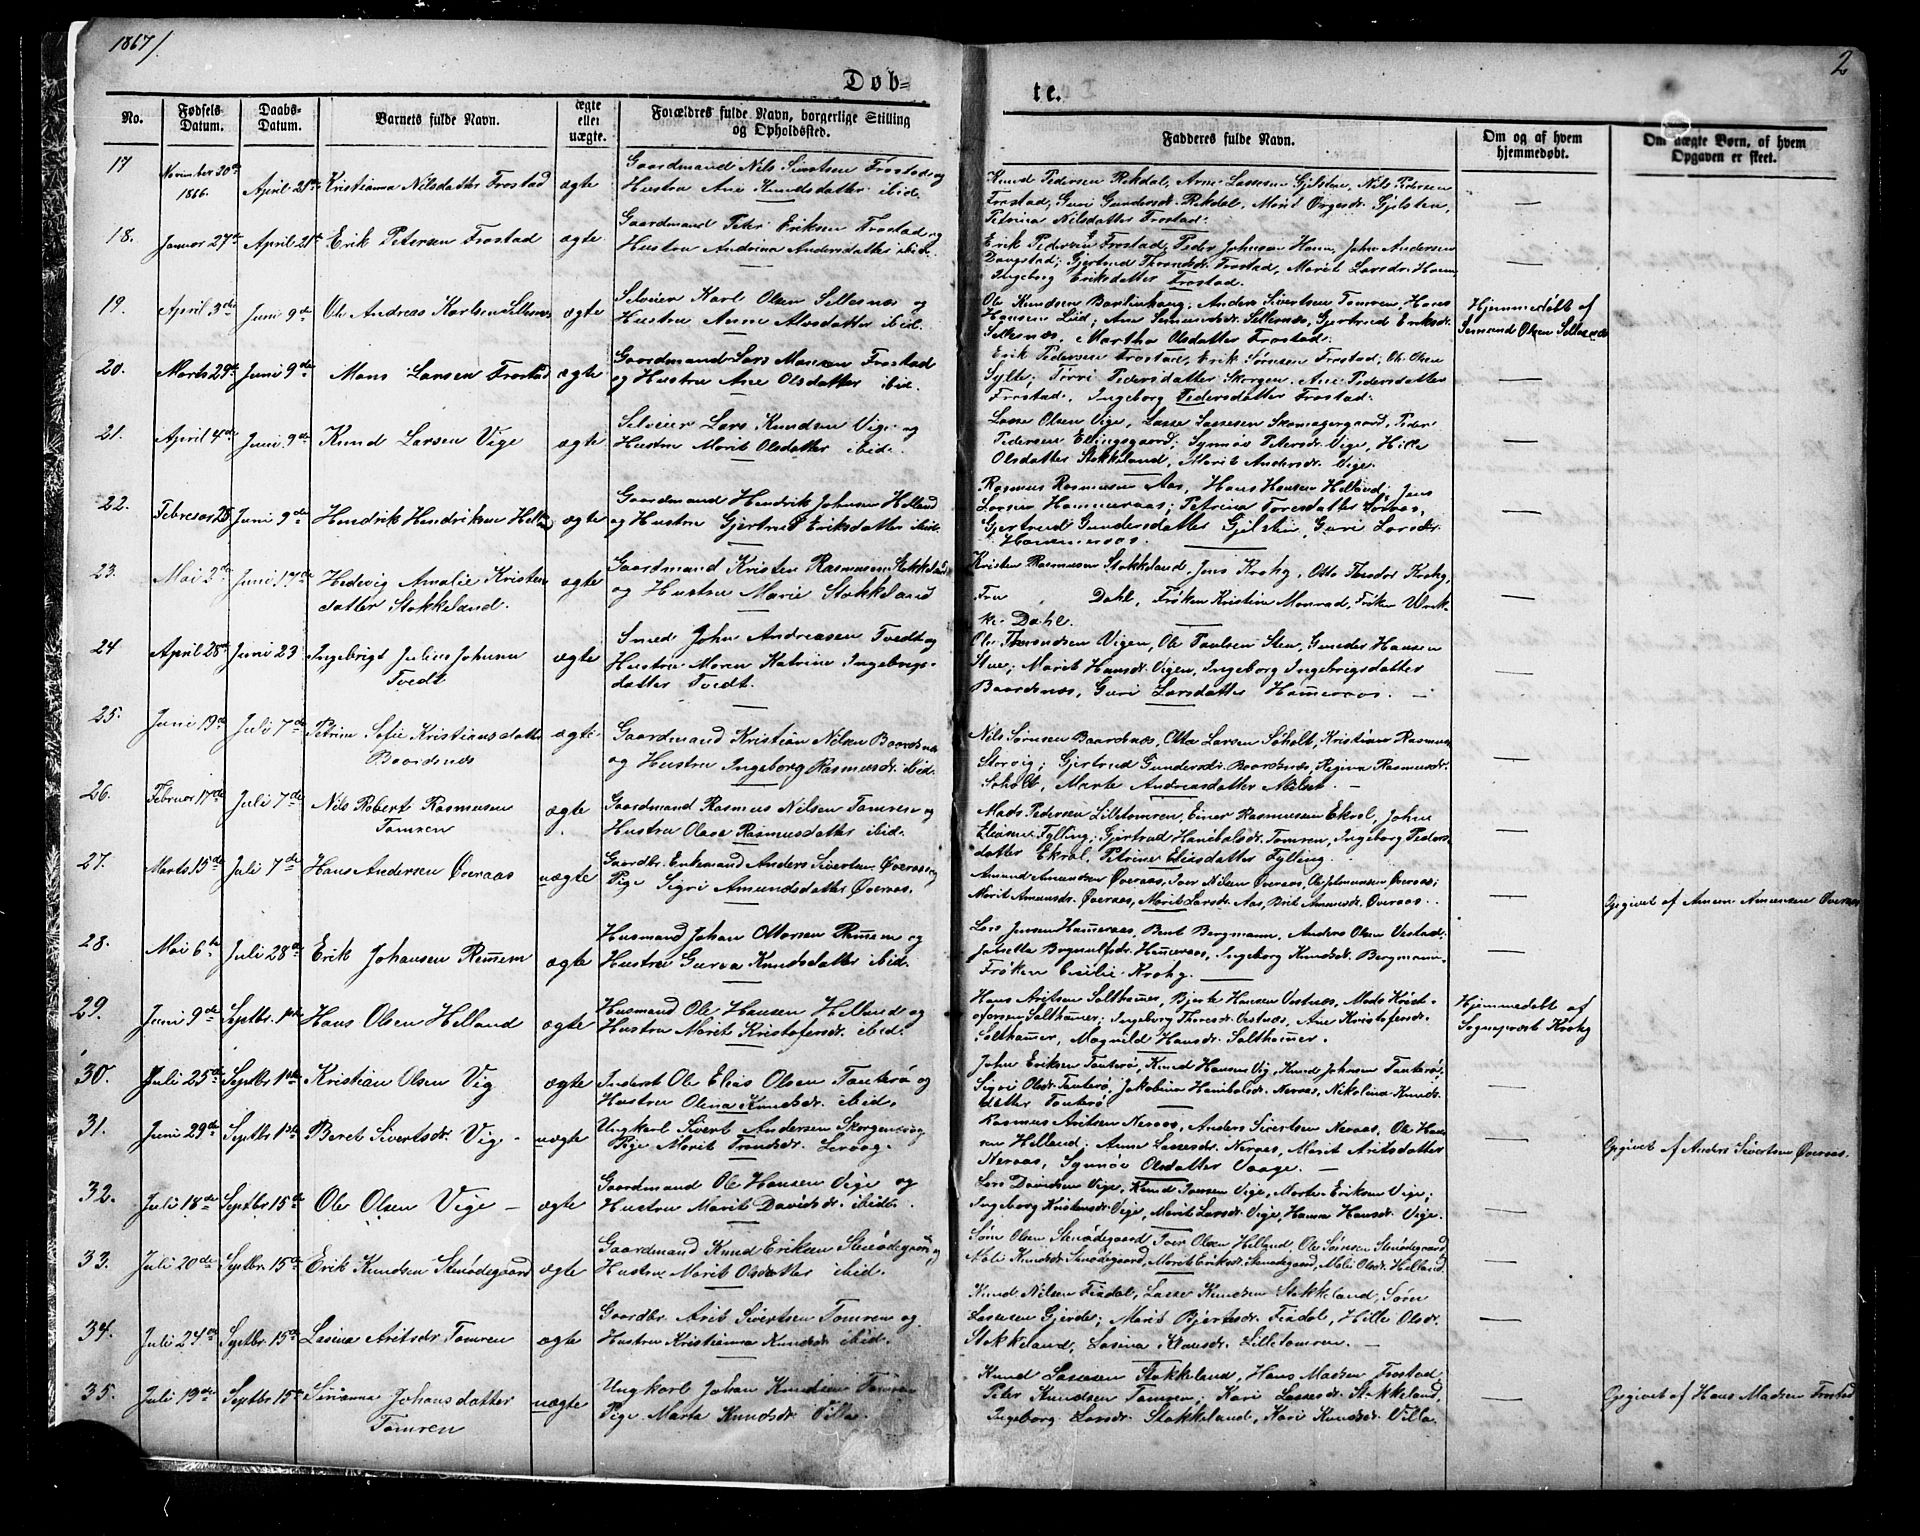 1867/
2
Døb=
te.
No.
Fødsels-Datum.
Daabs-Datum.
Barnets fulde Navn.
ægte eller uægte.
Forældres fulde Navn, borgerlige Stilling og Opholdssted.
Fadderes fulde Navn.
Om og af hvem hjemmedøbt.
Om uægte Børn, af hvem Opgaven er skeet.
17 November 30te 1866. April 21de Kristianna Nilsdatter Frostad ægte Gaardmand Nils Sivertsen Frostad og
Hustru Ane Knudsdatter ibid.
Knud Pedersen Rekdal, Arne Lassesen Gjelsten, Nils Pedersen
Frostad, Guri Gundersdr. Rekdal, Marit Gjelsten,
Petrina Nilsdatter Frostad. —
18. Januar 27de April 21de Erik Petersen Frostad ægte Gaardmand Peter Eriksen Frostad og
Hustru Andrina Andersdatter ibid.
Erik Pedersen Frostad, Peder Johnsen Hamn, John Andersen
Daugstad; Gjertrud Thronsdr. Frostad, Marit Larsdr. Hamn
Ingeborg Eriksdatter Frostad. —
19. April 3die Juni 9de Ole Andreas Karlsen Sellesnæs ægte Selveier Karl Olsen Sellesnæs og
Hustru Anne Alvsdatter ibid.
Ole Knudsen Barlinhaug, Anders Sivertsen Tomren, Hans
Hansen Lid; Ane Semundsdr. Sellesnæs, Gjertrud Eriksdr.
Sellesnæs, Martha Olsdatter Frostad.
Hjemmedøbt af
Semund Olsen Sellesnæs
20. Marts 29de Juni 9de Mons Larsen Frostad ægte Gaardmand Lars Monsen Frostad
og Hustru Ane Olsdatter ibid.
Erik Pedersen Frostad, Erik Sørensen Frostad, Ole Olsen
Sylte; Torri Pedersdatter Skorgen, Ane Pedersdatter
Frostad, Ingeborg Pedersdatter Frostad. —
21. April 4de Juni 9de Knud Larsen Vige ægte Selveier Lars Knudsen Vige og
Hustru Marit Olsdatter ibid.
Lasse Olsen Vige, Lasse Lassesen Skomagergaard, Peder
Pedersen Ellingsgaard; Synnøv Petersdr. Vige, Hille
Olsdatter Stokkeland, Marit Andersdr. Vige. —
22. Februar 28 Juni 9de Hendrik Hendriksen Helland ægte Gaardmand Hendrik Johnsen Helland
og Hustru Gjertrud Eriksdatter ibid.
Rasmus Rasmussen Aas, Hans Hansen Helland; Jens
Larsen Hammeraas; Petrina Toresdatter
Gjertrud Gundersdatter Gjelsten, Guri Larsdr.
Hammeraas. —
23. Mai 2den Juni 17de Hedevig Amalie Kristens
datter Stokkeland. ægte Gaardmand Kristen Rasmussen Stokkeland
og Hustru Marie Stokkeland
Kristen Rasmussen Stokkeland, Jens Krohg, Otto Theodor Krohg,
Fru Dahl, Frøken Kristine Monrad, Frøken Ulrik-
ke Dahl. —
24 April 28de Juni 23 Ingebrigt Julius Johnsen
Tvedt ægte Smed John Andreassen Tvedt og
Hustru Maren Katrine Ingebrigs-
datter Tvedt.
Ole Thronsen Vigen, Ole Paulsen Sten, Gunder Hansen
Stene; Marit Hansdr. Vigen, Ingeborg Ingebrigsdatter
Baardsnæs, Guri Larsdatter Hammeraas. —
25. Juni 19de Juli 7de Petrine Sofie Kristiansdatter
Baardsnæs ægte Gaardmand Kristian Nilsen Baardsnæs
og Hustru Ingeborg Rasmusdr. ibid.
Nils Sørensen Baardsnæs, Otto Larsen Søholt, Kristian Rasmussen
Storvig; Gjertrud Gundersdr. Baardsnæs, Regina Rasmusdr.
Søholt, Marte Andreasdatter Melset. —
26. Februar 17de Juli 7de Nils Robert Rasmussen
Tomren ægte Gaardmand Rasmus Nilsen Tomren og
Hustru Olave Rasmusdatter ibid.
Mads Pedersen Lilletomren, Einer Rasmussen Ekrol, John
Eliasen Fylling; Gjertrud Hanibalsdr. Tomren, Ingeborg Peders-
datter Ekrol, Petrine Eliasdatter Fylling. —
27. Marts 15de Juli 7de Hans Andersen Øveraas uægte Gaardbr. Enkemand Anders Sivertsen Øveraas og
Pige Sigri Amundsdatter Øveraas.
Amund Amundsen Øveraas, Iver Nilsen Øveraas, Ole Johannesen Øveraas;
Marit Amunsdr. Øveraas, Marit Larsdr. Aas, Brit Amunsdr. Øveraas. —
Opgivet af Amun Amunsen Øveraas
28. Mai 6te Juli 28de Erik Johansen Remmem ægte Husmand Johan Ottersen Remmem og
Hustru Gurva Knudsdatter ibid.
Lars Jensen Hammeraas, Bent Bergmann, Anders Olsen Vestad,
Jansetta Brynulfsdr. Hammeraas, Ingeborg Knudsdr. Bergmann,
Frøken Cecilie Krohg. —
29. Juni 9de Septbr. 1ste Hans Olsen Helland ægte Husmand Ole Hansen Helland og
Hustru Marit Kristofersdr. ibid.
Hans Aritsen Salthammer, Bjerte Hansen Vestnæs, Mads Krist-
ofersen Salthammer; Ingeborg Thoresdr. Vestnæs, Ane Kristofersdr.
Salthammer, Magnild Hansdr. Salthammer.
Hjemmedøbt af
Sogneprest Krohg
30. Juli 25de Septbr. 1ste Kristian Olsen Vig ægte Inderst Ole Elias Olsen Tauterø og
Hustru Olina Knudsdr. ibid.
John Eriksen Tauterø, Knud Hansen Vig, Knud Johnsen Tauterø,
Sigri Olsdr. Tauterø, Jakobina Hanibalsdr. Neraas, Nikolina Knuds-
datter Tauterø. —
31. Juni 29de Septbr. 1ste Beret Sivertsdr. Vig — uægte Ungkarl Sivert Andersen Skorgenes og
Pige Marit Tronsdr. Leraag.
Rasmus Aritsen Neraas, Anders Sivertsen Neraas, Ole Han-
sen Helland; Anne Lassesdr. Neraas, Marit Aritsdatter
Neraas, Synnøv Olsdatter Vaage. —
Opgivet af Anders Sivertsen Øveraas.
32. Juli 18de Septbr. 15de Ole Olsen Vige — ægte Gaardmand Ole Hansen Vige og
Hustru Marit Davidsdr. ibid.
Lars Davidsen Vige, Knud Iversen Vige, Morten Eriksen Vige;
Ingeborg Kristensdr. Vige, Marit Larsdr. Vige, Hanna Hansdr. Vige. —
33. Juli 20de Septbr. 15de Erik Knudsen Stenødegaard ægte Gaardmand Knud Eriksen Stenødegaard og
Hustru Marit Olsdatter ibid.
Sørn Olsen Stenødegaard, Iver Olsen Helland, Ole Sørnsen Stenødegaard,
Mali Knudsdr. Stenødegaard, Marit Eriksdr. Stenødegaard, Mali Olsdr. Helland. —
34. Juli 24de Septbr. 15de Lasina Aritsdr Tomren ægte Gaardbr. Arit Sivertsen Tomren og
Hustru Kristianna Knudsdr. ibid.
Knud Nilsen Fiadal, Lasse Knudsen Stokkeland, Sørn
Lassesen Gjerde; Marit Bjertesdr. Fiadal, Hille Olsdr.
Stokkeland, Lasina Klausdr. Lilletomren. —
35. Juli 19de Septbr. 15de Sirianna Johansdatter
Tomren uægte Ungkarl Johan Knudsen Tomren
Pige Marta Knudsdr. Villa.
Knud Lassesen Stokkeland, Hans Madsen Frostad,
Peter Knudsen Tomren; Kari Lassesdr. Stokkeland,
Ingeborg Larsdr. Stokkeland, Kari Knudsdr. Villa. —
Opgivet af Hans Madsen Frostad